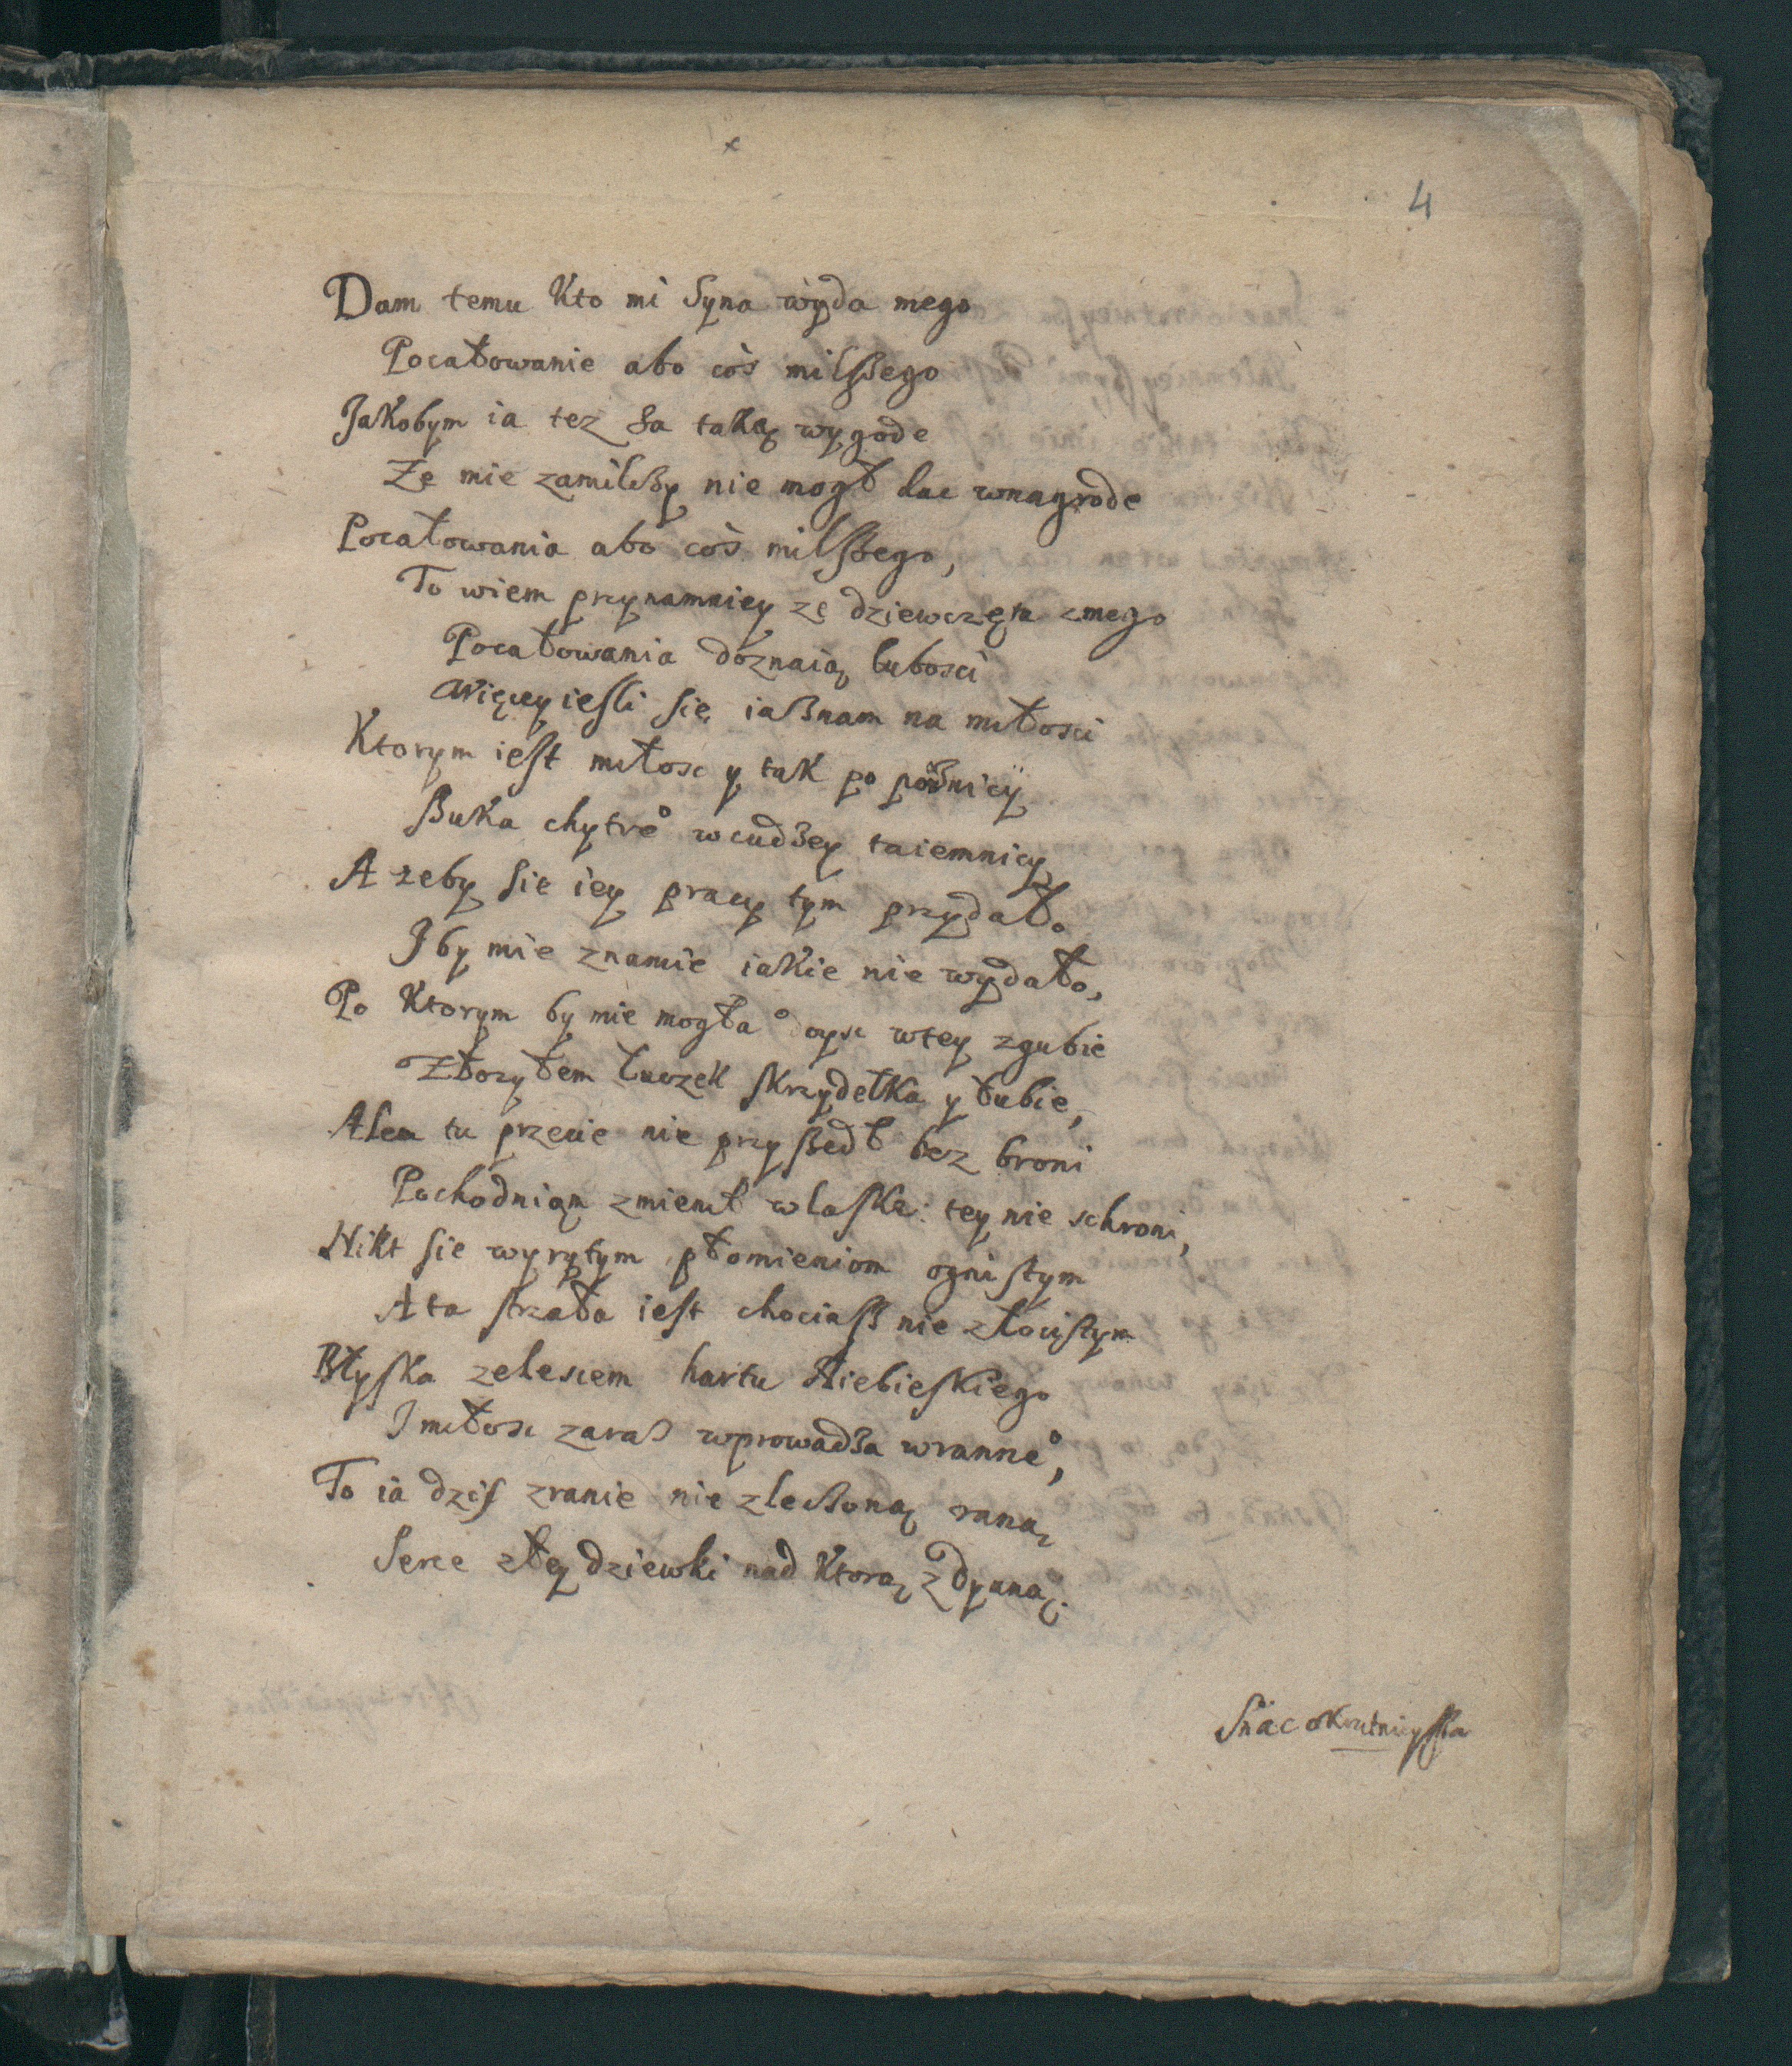 4
Dam temu Kto mi Syna wyda mego
Pocałowanie abo coś milſzego
Jakobym ia tez Za taką wygode
Ze mie zamilczy nie mogł dac wnagrode
Pocałowania abo coś milſzego,
To wiem przynamniey ze dziewczęta zmego
Pocałowania doznaią lubosci
Więcey ieſli ſię iaſznam na miłosci
Ktorym ieſt miłosc y tak po
ſzuka chytrze wcudzey taiemnicy
A zeby ſie iey pracy tym przydało
I by mie znamie iakie nie wydało,
Po Ktorym by mie mogła doysc wtey zgubie
Złozyłem Łuczek ſkrzydełka y łubie,
Alem tu przecie nie przyſzedł bez broni
Pochodniąm zmienił wlaſke: tey nie schroni,
Nikt ſie wyrytym płomieniom ogniſtym
A ta ſtrzała ieſt chociaſz nie złociſtym
Błyſka zelescem hartu Niebieſkiego
I miłosc zaraz wprowadza wranne,
To ia dziſ zranie nie zleczoną raną
Serce złey dziewki nad Ktorą z Dyaną.
Snac okrutnieyſza